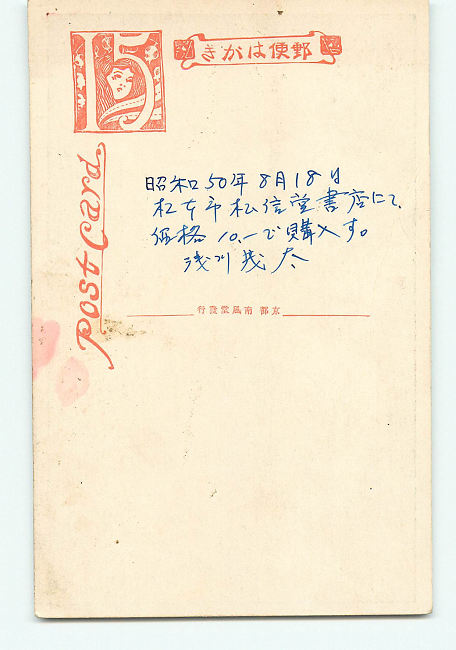 15
郵便はがき
POST CARD
昭和50年8月18日
松本市松信堂書店にて、
価格10.-で購入す。
浅川茂太
京都南風堂發行